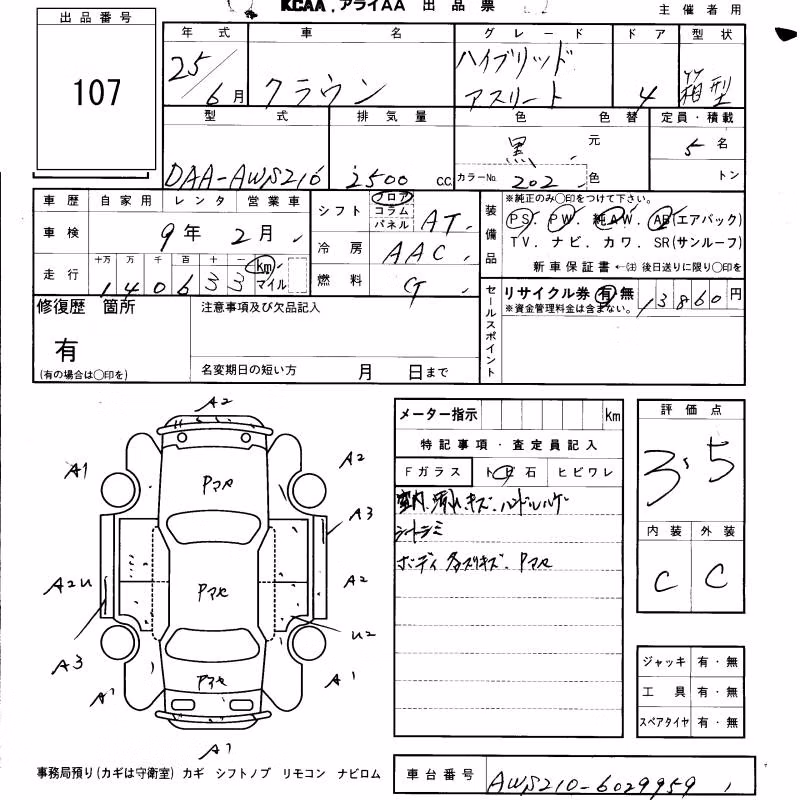 KCAA、アライAA 出品票
主催者用
出品番号
107
年式 車名 グレード ドア 型状
25/6月 クラウン ハイブリッド アスリート 4 箱型
型式 排気量 色 色替 定員・積載
DAA-AWS210 2500 cc 黒 元 5名
カラーNo. 202 色 トン
車歴 自家用 レンタ 営業車
車検 9年 2月
走行 十万 万 千 百 十 一 km マイル
140633
シフト フロア コラム パネル AT
冷房 AAC
燃料 G
装備品
※純正のみ○印をつけて下さい。
PS. PW. 純AW. AB(エアバック)
TV. ナビ. カワ. SR(サンルーフ)
新車保証書←㊟ 後日送りに限り○印を
セールスポイント
リサイクル券 有・無 13860円
※資金管理料金は含まない。
修復歴 箇所
有
(有の場合は○印を)
注意事項及び欠品記入
名変期日の短い方 月 日まで
A2
A1 A2
Pマセ
A3
A2U A2
Pマセ
U2
A3
Pマセ
A1 A1
A1
メーター指示 km
特記事項・査定員記入
Fガラス トビ石 ヒビワレ
室内 汚れ.キズ.ハンドルハゲ
シートシミ
ボーディ 多スリキズ. Pマセ
評価点
3.5
内装 外装
C C
ジャッキ 有・無
工具 有・無
スペアタイヤ 有・無
事務局預り(カギは守衛室) カギ シフトノブ リモコン ナビロム
車台番号 AWS210-6029959